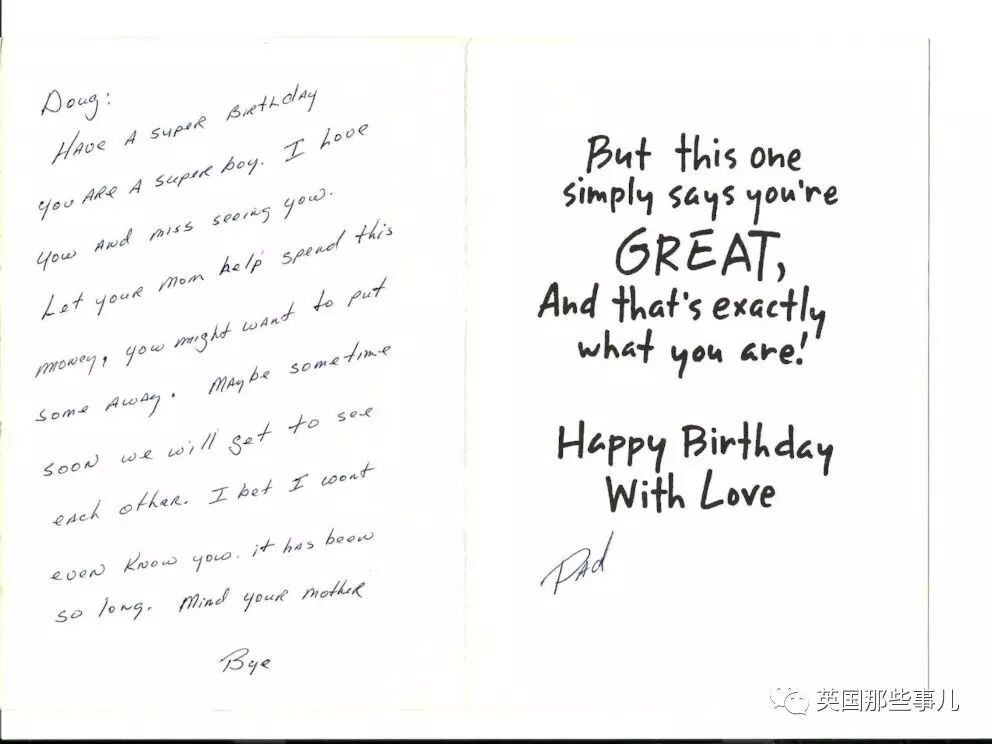 Doug:
Have a super Birthday
you are a super boy. I love
you and miss seeing you.
Let your mom help spend this
money, you might want to put
some away. Maybe sometime
soon we will get to see
each other. I bet I wont
even know you. it has been
so long. Mind your mother
Bye
But this one
simply says you're
GREAT,
And that's exactly
what you are!
Happy Birthday
With Love
Dad
英国那些事儿